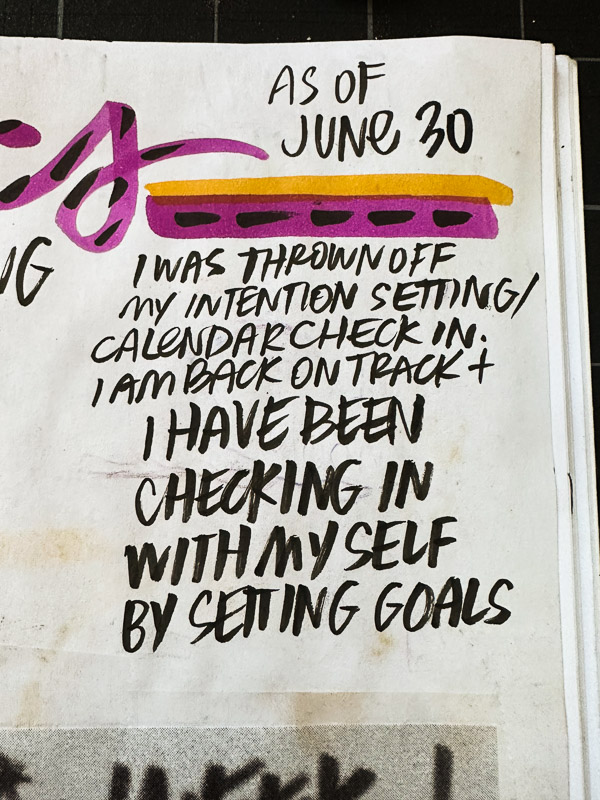 AS OF
JUNE 30
NG
I WAS THROWN OFF
MY INTENTION SETTING/
CALENDAR CHECK IN.
I AM BACK ON TRACK +
I HAVE BEEN
CHECKING IN
WITH MY SELF
BY SETTING GOALS